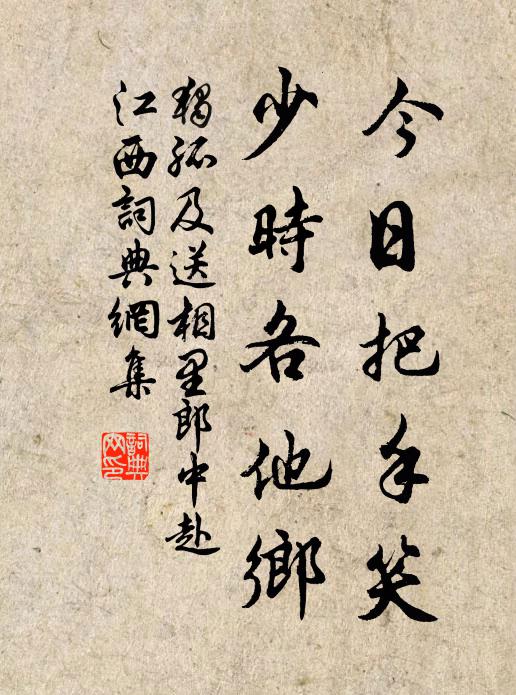 今日把手笑
少時各他鄉
獨孤及送相里郎中赴
江西詞典網集
詞典
网印